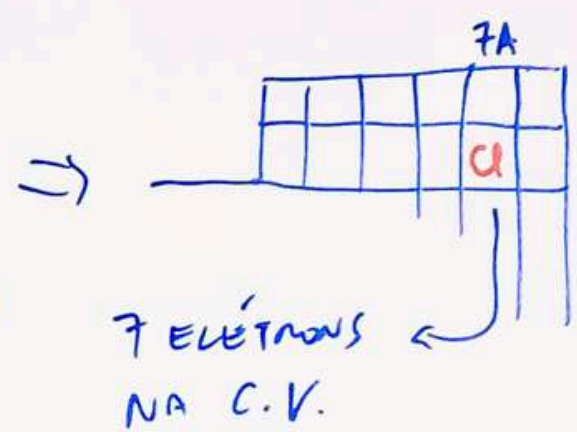 7A
⇒
Cl
7 ELÉTRONS
NA C.V.